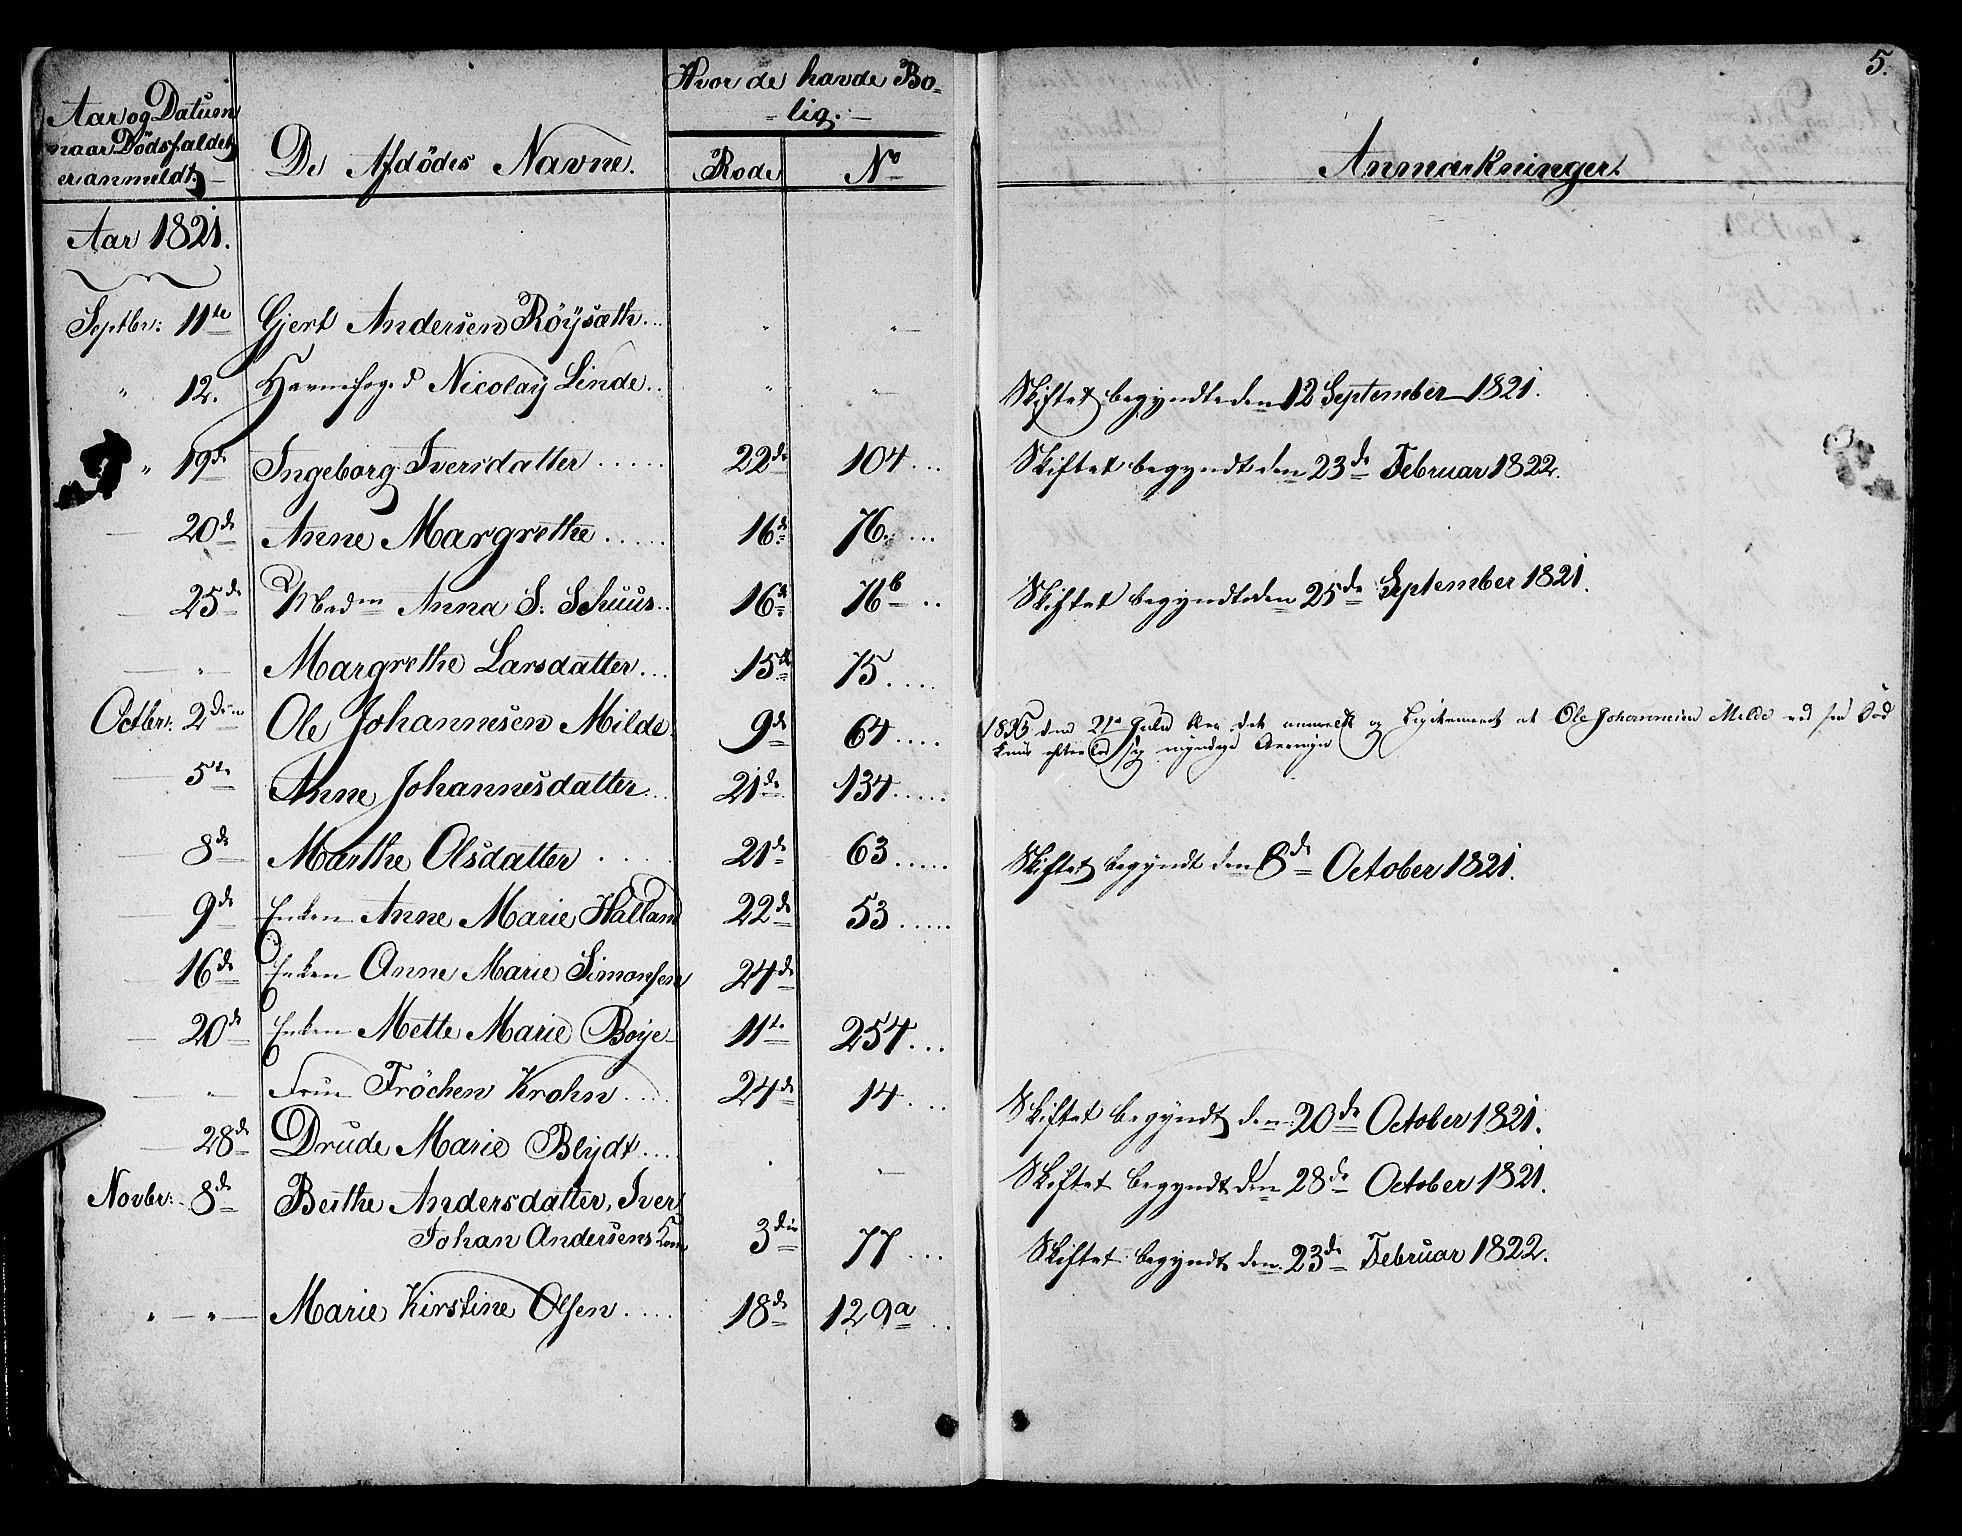 5.
Aar og Datum naar Dödsfaldet er anmeldt.
De Afdödes Navne.
Hvor de havde Bolig.
Rode
No
Anmærkninger.
Aar 1821.
Septbr: 11te Gjert Andersen Röÿsæth...
" 12. Havnefoged Nicolaÿ Linde.. Skiftet begyndte den 12 September 1821.
" 19de Ingeborg Iversdatter ...... 22de 104... Skiftet begyndt den 23de Februar 1822.
20de Anne Margrethe ...... 16de 76....
25de Madm Anna S. Schuus.. 16de 76b .. Skiftet begyndte den 25de September 1821.
" Margrethe Larsdatter... 15de 75....
Octbr: 2den Ole Johannesen Milde. 9de 64.... 1835 den 21de Juli blev det anmeldt og Legitimeret at Ole Johannesen Milde ved sin Död
kuns efterlod sig myndige Arvinger
5te Anne Johannesdatter... 21de 134.....
8de Marthe Olsdatter ..... 21de 63..... Skiftet begyndt den 8de October 1821.
9de Enken Anne Marie Halland 22de 53.....
16de Enken Anne Marie Simonsen 24de
20de Enken Mette Marie Boÿe 11te 254...
" Frue Fröchen Krohn.... 24de 14.... Skiftet begyndt den 20de October 1821.
28de Drude Marie Blÿdt.... Skiftet begyndt den 28de October 1821.
Novbr: 8de Berthe Andersdatter, Iver
Johan Andersens Kone 3die 77... Skiftet begyndt den 23de Februar 1822.
" " Marie Kirstine Olsen..... 18de 129a ..